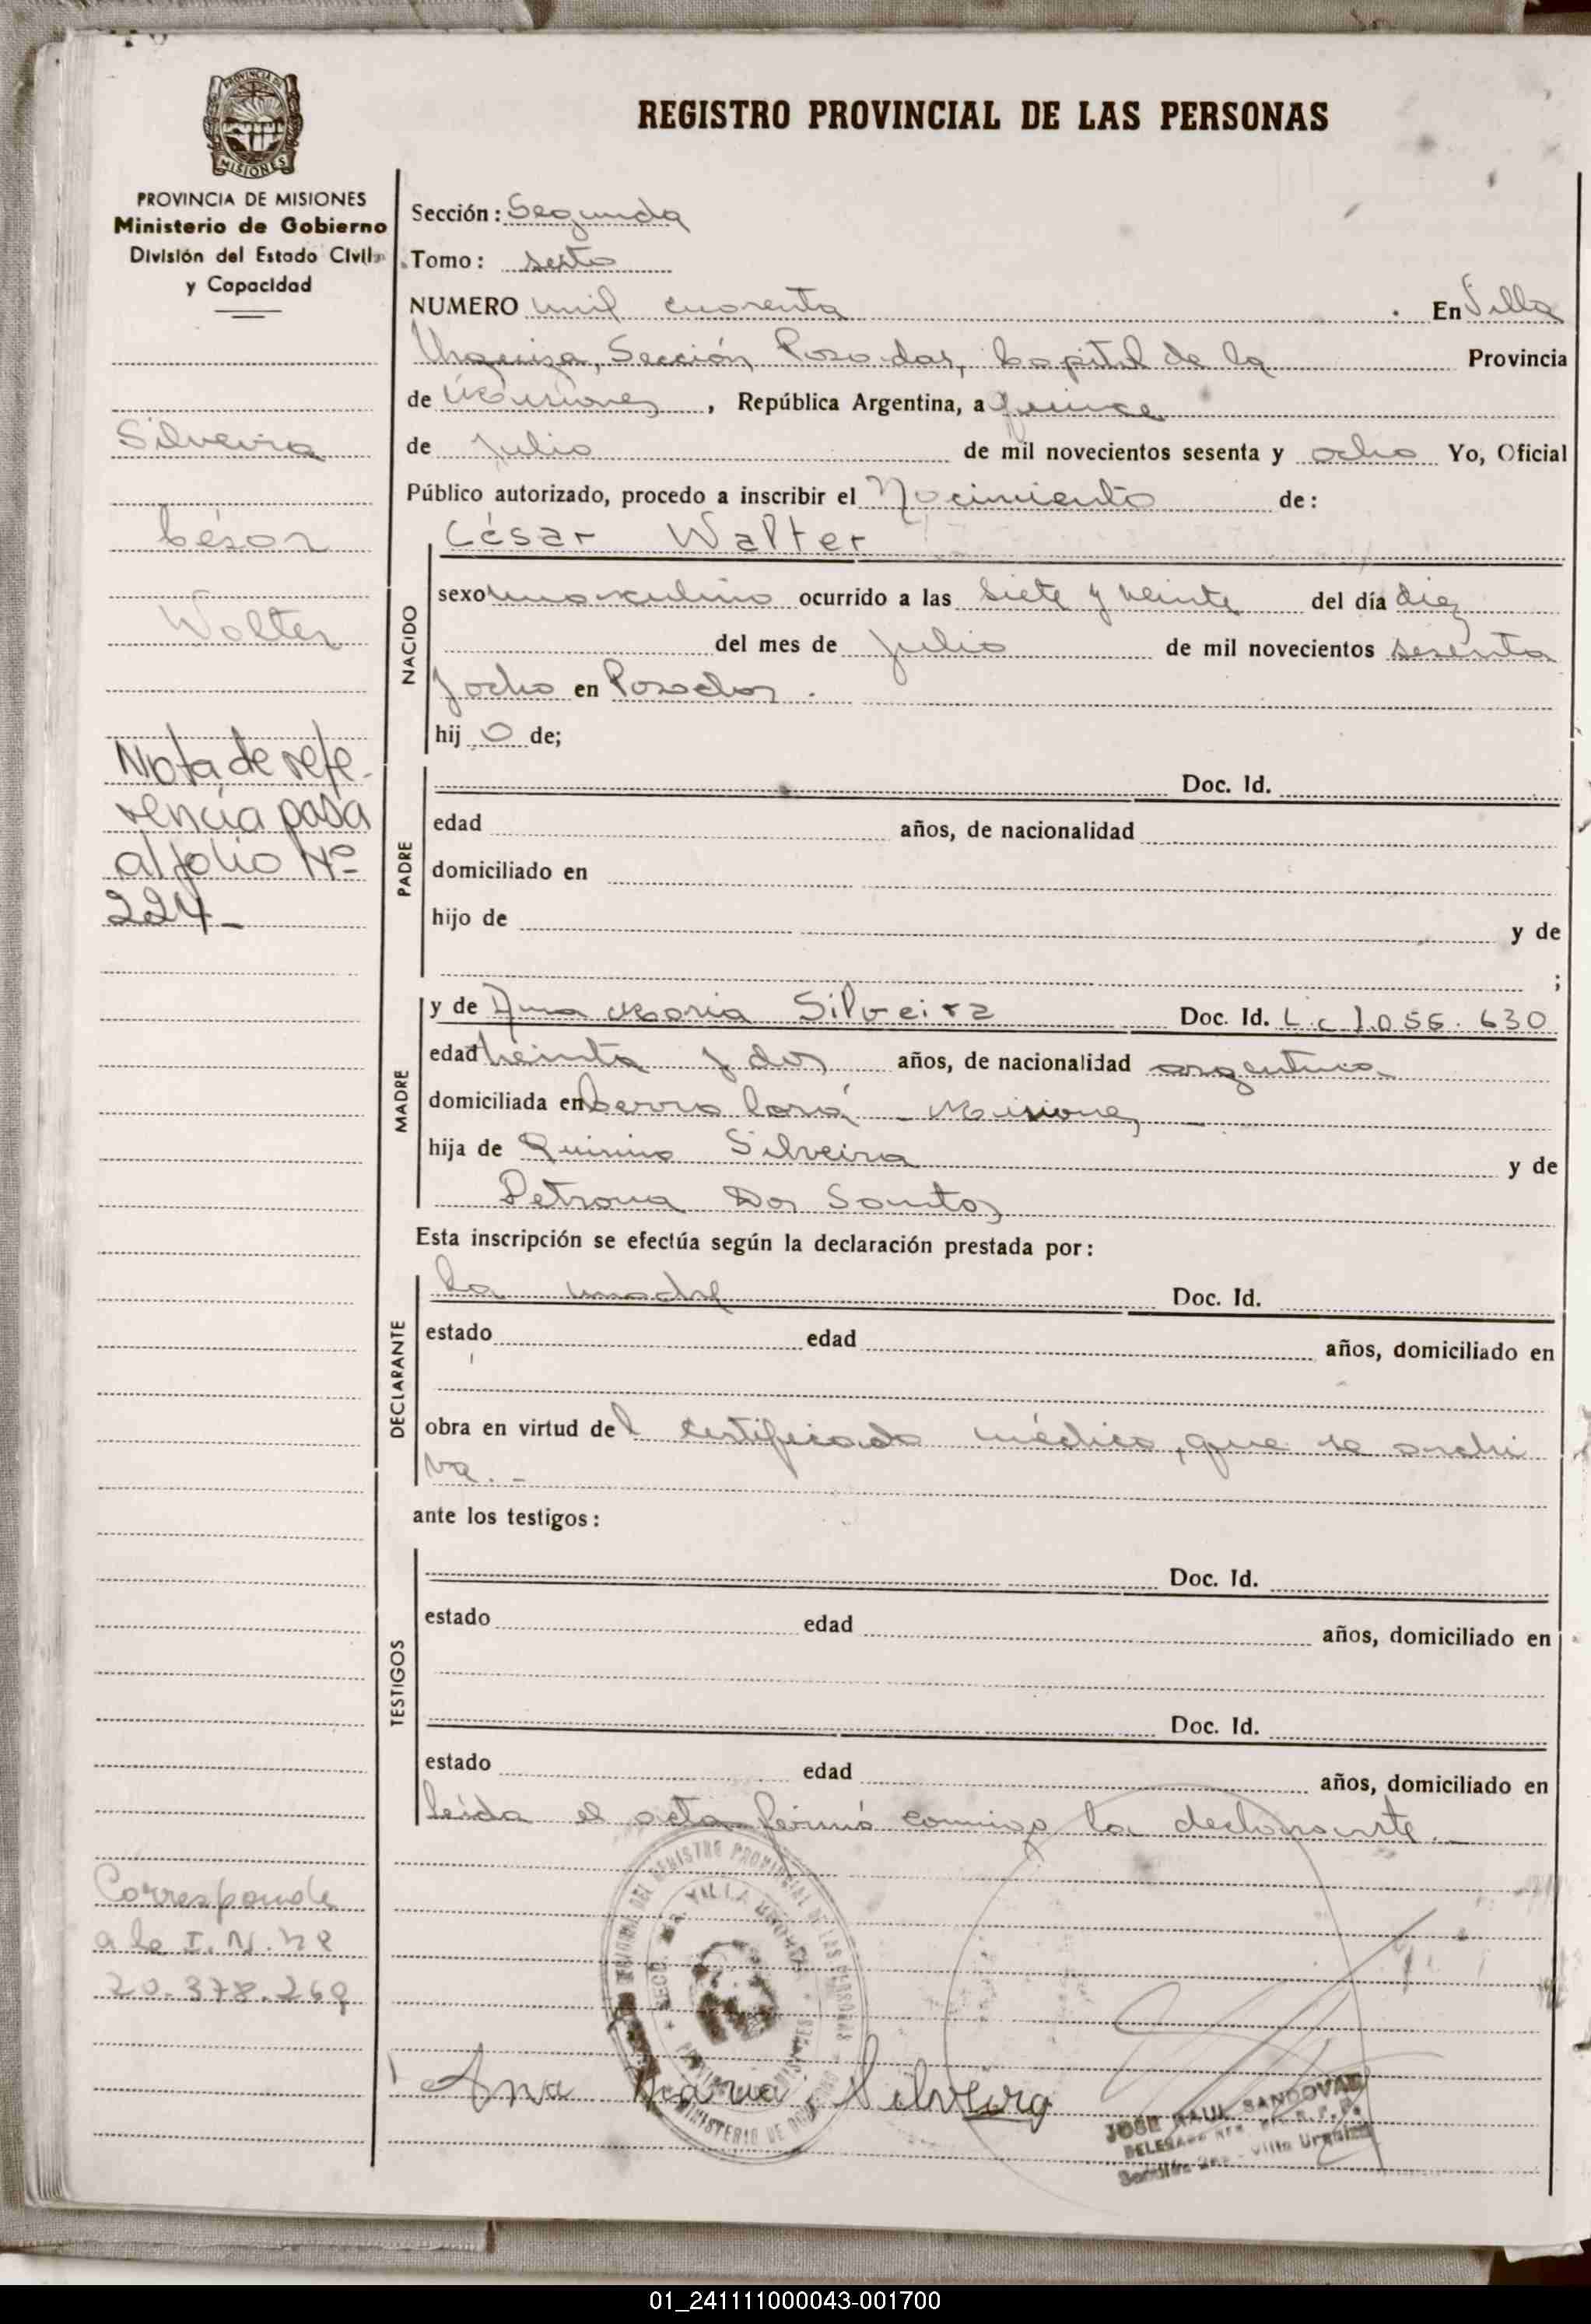 PROVINCIA DE MISIONES
Ministerio de Gobierno
División del Estado Civil
y Capacidad
Silveira
César
Walter
Nota de refe-
rencia pasa
al folio Nº
224-
Corresponde
a la I. N. Nº
20.378.269
REGISTRO PROVINCIAL DE LAS PERSONAS
Sección: Segunda
Tomo: sexto
NUMERO mil cuarenta . En Villa
Urquiza, Sección Posadas, Capital de la Provincia
de Misiones, República Argentina, a quince
de Julio de mil novecientos sesenta y ocho Yo, Oficial
Público autorizado, procedo a inscribir el Nacimiento de:
César Walter
NACIDO
sexo masculino ocurrido a las siete y veinte del día diez
del mes de julio de mil novecientos sesenta
y ocho en Posadas.
hijo de;
PADRE
Doc. Id.
edad años, de nacionalidad
domiciliado en
hijo de y de
;
MADRE
y de Ana María Silveira Doc. Id. L.c 1.056.630
edad treinta y dos años, de nacionalidad argentina
domiciliada en Cerro Corá - Misiones
hija de Quirino Silveira y de
Petrona Dos Santos
Esta inscripción se efectúa según la declaración prestada por:
DECLARANTE
la madre Doc. Id.
estado edad años, domiciliado en
obra en virtud del certificado médico, que se archi
va.-
ante los testigos:
TESTIGOS
Doc. Id.
estado edad años, domiciliado en
Doc. Id.
estado edad años, domiciliado en
leída el acta firmó conmigo la declarante.-
Ana Maria Silveira
JOSE RAUL SANDOVAL
Villa Urquiza
01_241111000043-001700